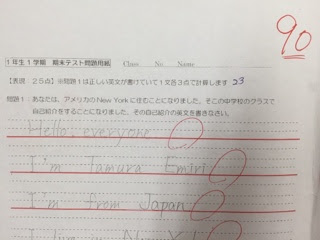 90
1年生1学期 期末テスト問題用紙 Class No Name
【表現：25点】※問題1は正しい英文が書けていて1文各3点で計算します 23
問題1：あなたは、アメリカの New York に住むことになりました。そこの中学校のクラスで
自己紹介をすることになりました。その自己紹介の英文を書きなさい。
Hello, everyone.
I'm Tamura Emiri
I'm from Japan
I live in New York